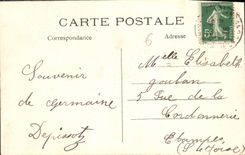 CARTE POSTALE
Correspondance
Adresse
6
Melle Elisabeth
Souvenir
de Germaine
5 Rue de la
Cordonnerie
Etampes